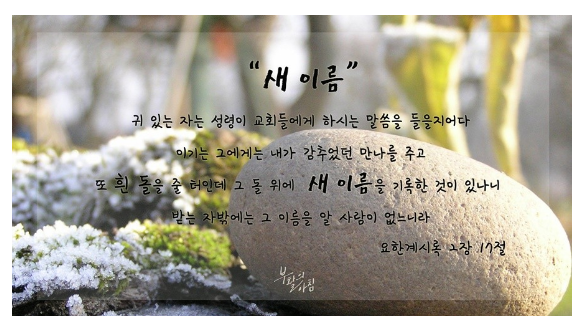 “새 이름”
귀 있는 자는 성령이 교회들에게 하시는 말씀을 들을지어다
이기는 그에게는 내가 감추었던 만나를 주고
또 흰 돌을 줄 터인데 그 돌 위에 새 이름을 기록한 것이 있나니
받는 자밖에는 그 이름을 알 사람이 없느니라
요한계시록 2장 17절
부활의아침